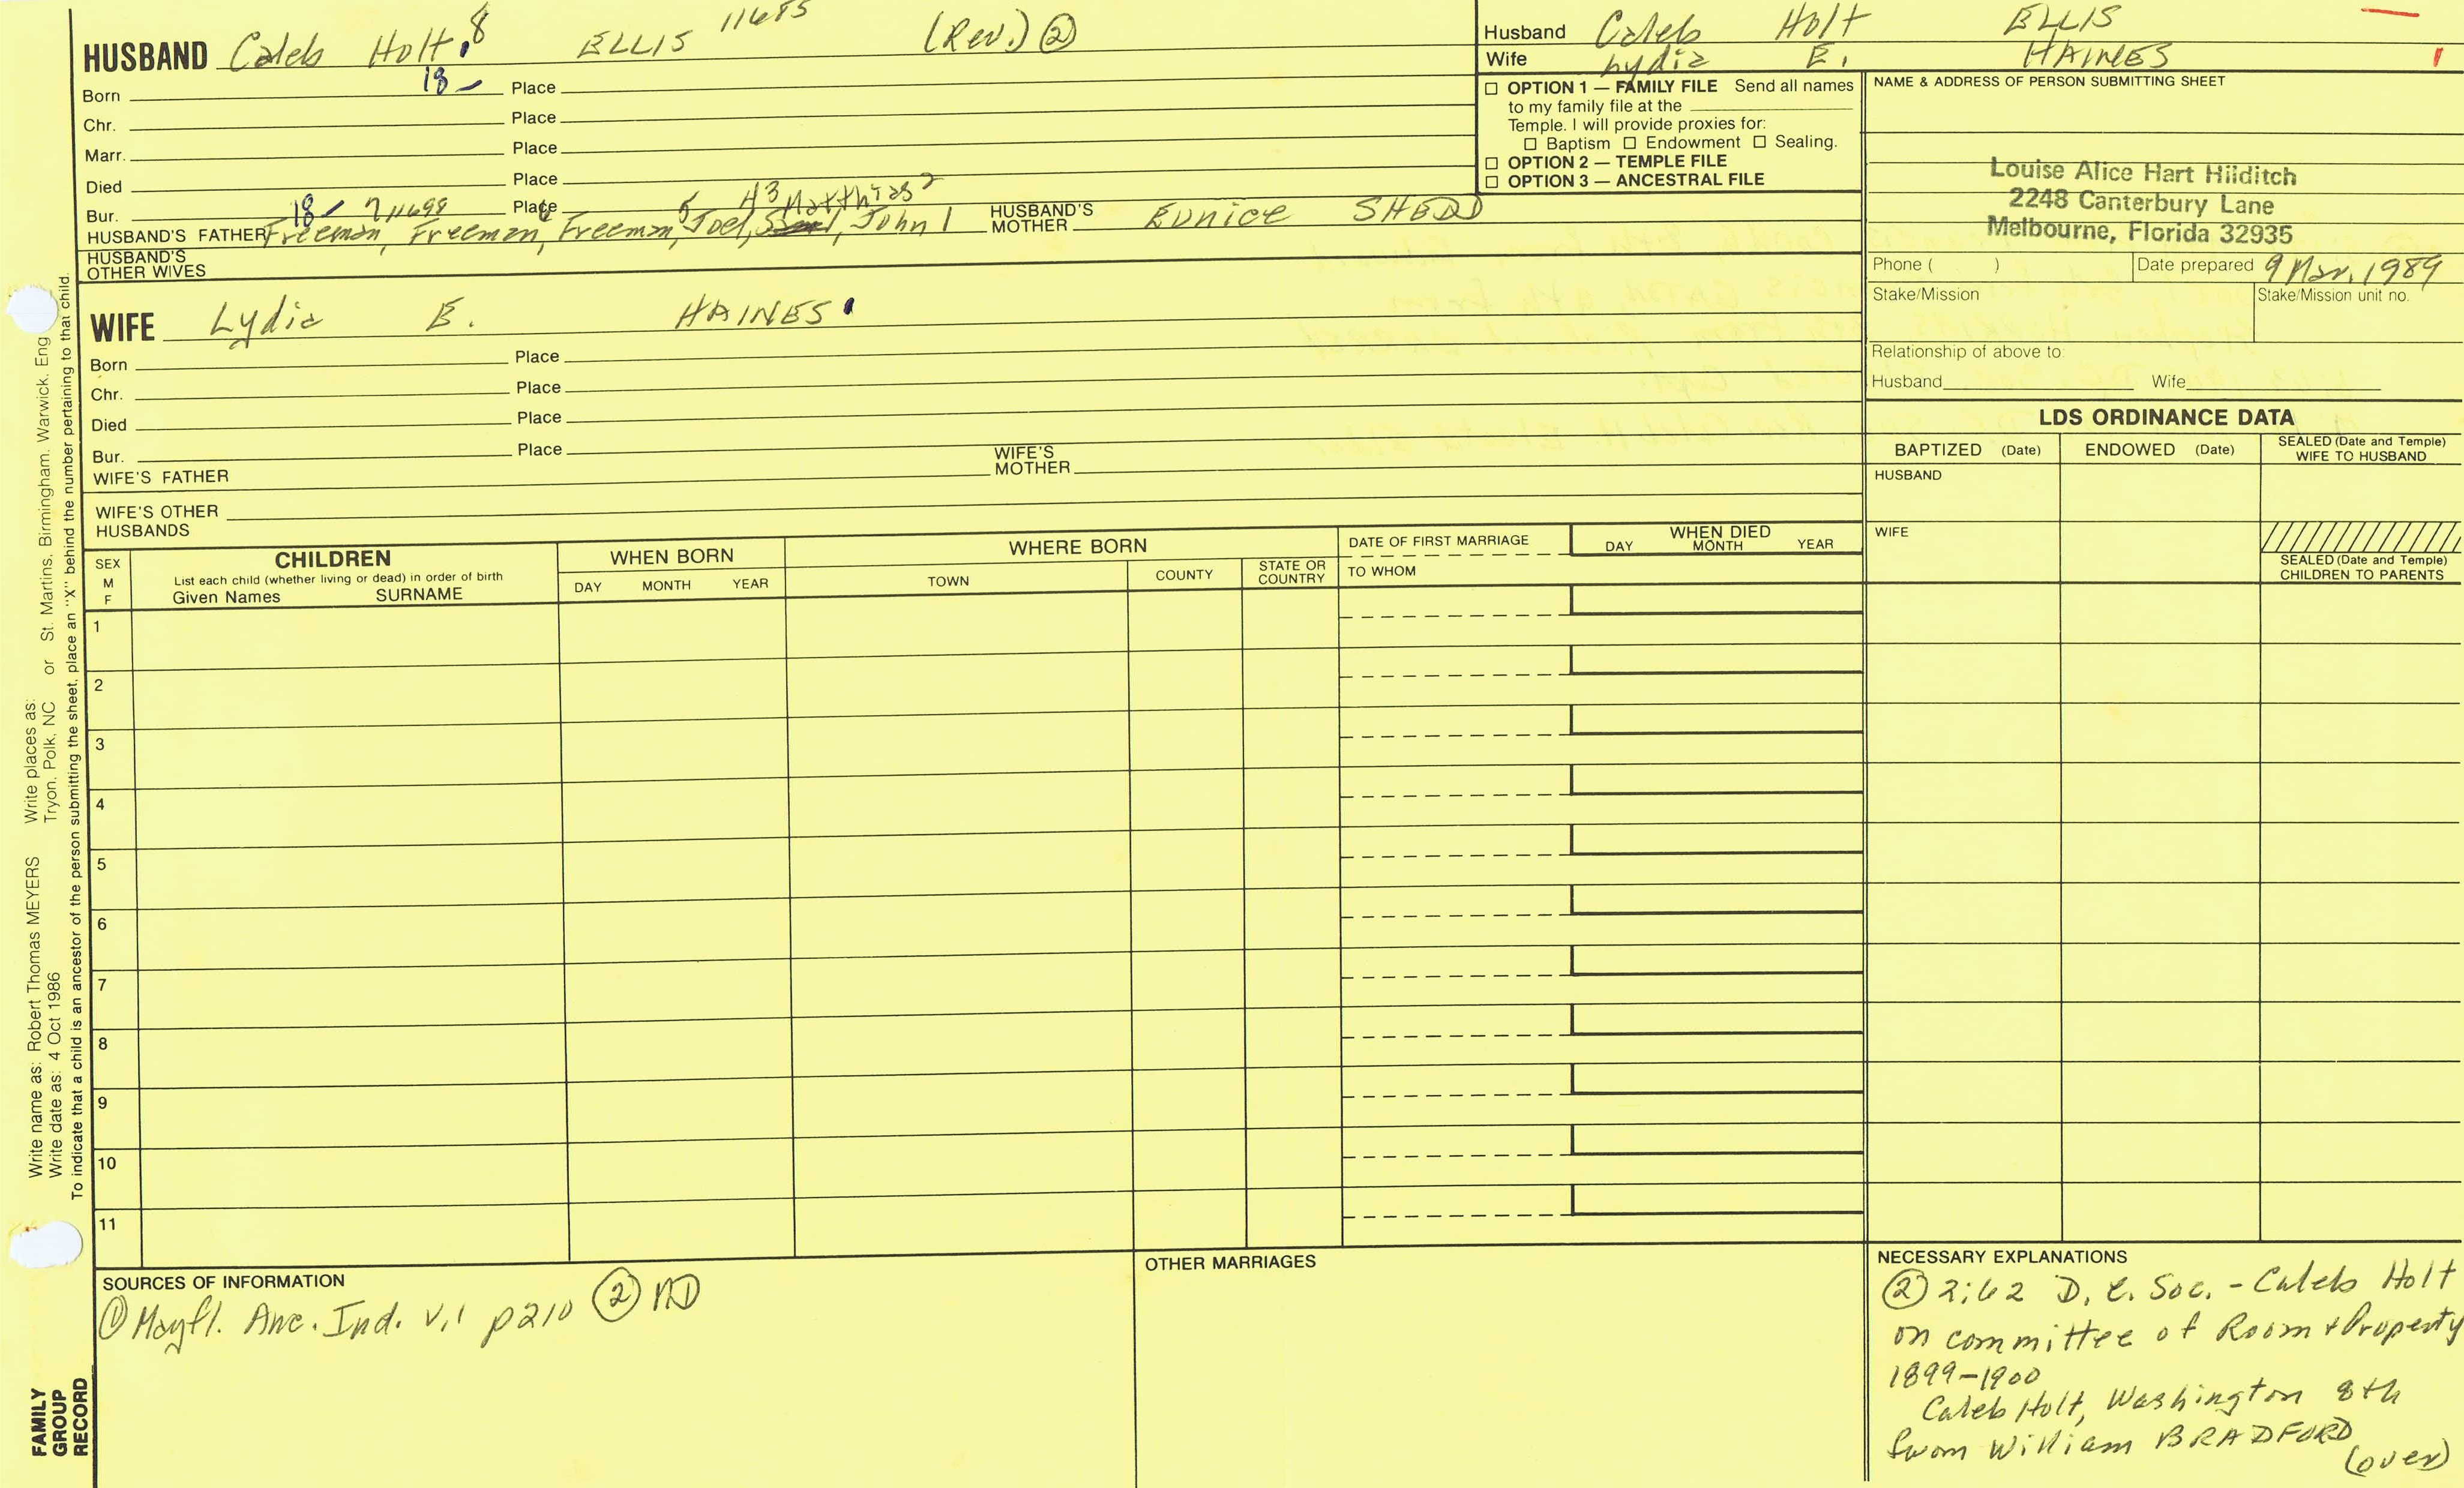 HUSBAND Caleb Holt 8 ELLIS 11685 (Rev.) ②
Born 18- Place
Chr. Place
Marr. Place
Died Place
Bur. Place
18- 7 11698 6 5 4 3 Matthias 2
HUSBAND'S FATHER Freeman, Freeman, Freeman, Joel, John 1 HUSBAND'S MOTHER Eunice SHEDD
HUSBAND'S OTHER WIVES
WIFE Lydia E. HAINES
Born Place
Chr. Place
Died Place
Bur. Place
WIFE'S FATHER WIFE'S MOTHER
WIFE'S OTHER HUSBANDS
Husband Caleb Holt ELLIS
Wife Lydia E. HAINES
☐ OPTION 1 — FAMILY FILE Send all names
to my family file at the
Temple. I will provide proxies for:
☐ Baptism ☐ Endowment ☐ Sealing.
☐ OPTION 2 — TEMPLE FILE
☐ OPTION 3 — ANCESTRAL FILE
NAME & ADDRESS OF PERSON SUBMITTING SHEET
Louise Alice Hart Hilditch
2248 Canterbury Lane
Melbourne, Florida 32935
Phone ( ) Date prepared 9 Mar. 1989
Stake/Mission Stake/Mission unit no.
Relationship of above to:
Husband Wife
LDS ORDINANCE DATA
BAPTIZED (Date) ENDOWED (Date) SEALED (Date and Temple) WIFE TO HUSBAND
HUSBAND
WIFE
SEALED (Date and Temple)
CHILDREN TO PARENTS
SEX M F
CHILDREN
List each child (whether living or dead) in order of birth
Given Names SURNAME
WHEN BORN
DAY MONTH YEAR
WHERE BORN
TOWN COUNTY STATE OR COUNTRY
DATE OF FIRST MARRIAGE
TO WHOM
WHEN DIED
DAY MONTH YEAR
1
2
3
4
5
6
7
8
9
10
11
SOURCES OF INFORMATION
① Mayfl. Anc. Ind. v.1 p210 ② ND
OTHER MARRIAGES
NECESSARY EXPLANATIONS
② 2:62 D. C. Soc. - Caleb Holt
on committee of Room & Property
1899-1900
Caleb Holt, Washington 8th
from William BRADFORD
(over)
Write name as: Robert Thomas MEYERS Write places as:
Write date as: 4 Oct 1986 Tryon, Polk, NC or St. Martins, Birmingham, Warwick, Eng
To indicate that a child is an ancestor of the person submitting the sheet, place an "X" behind the number pertaining to that child.
FAMILY
GROUP
RECORD